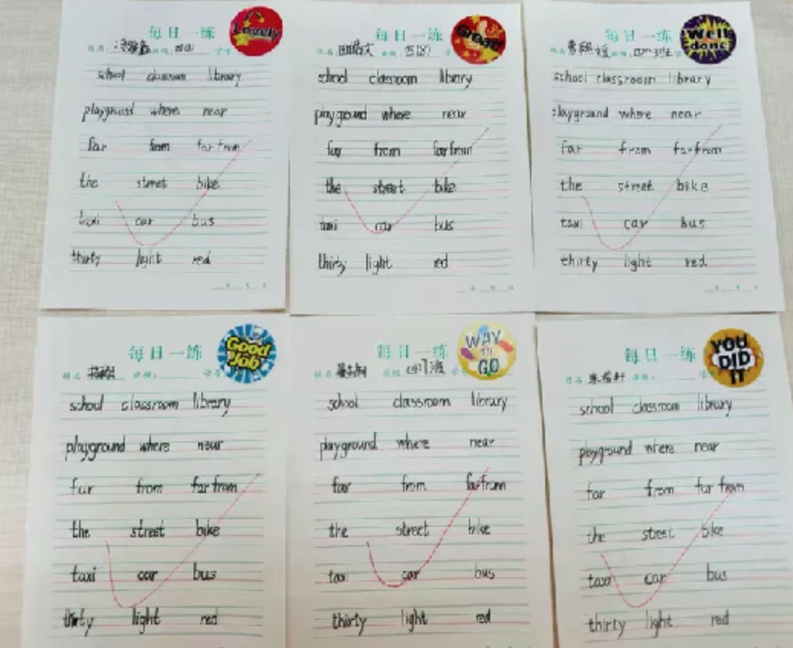 每日一练
Lovely
school classroom library
playground where near
far from far from
the street bike
taxi car bus
thirty light red
每日一练
Great!
school classroom library
playground where near
far from far from
the street bike
taxi car bus
thirty light red
每日一练
Well done!
school classroom library
playground where near
far from far from
the street bike
taxi car bus
thirty light red
每日一练
Good Job
school classroom library
playground where near
far from far from
the street bike
taxi car bus
thirty light red
每日一练
WAY TO GO
school classroom library
playground where near
far from far from
the street bike
taxi car bus
thirty light red
每日一练
YOU DID IT
school classroom library
playground where near
far from far from
the street bike
taxi car bus
thirty light red